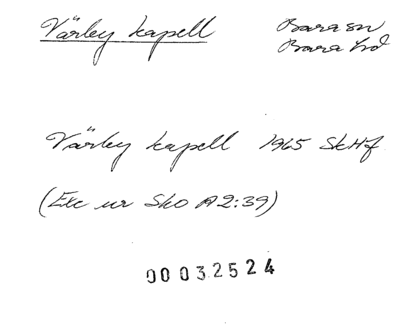 Värley kapell Bara sn
Bara hd
Värley kapell 1965 SkHf
(Exc ur SkO A2:39)
00032524